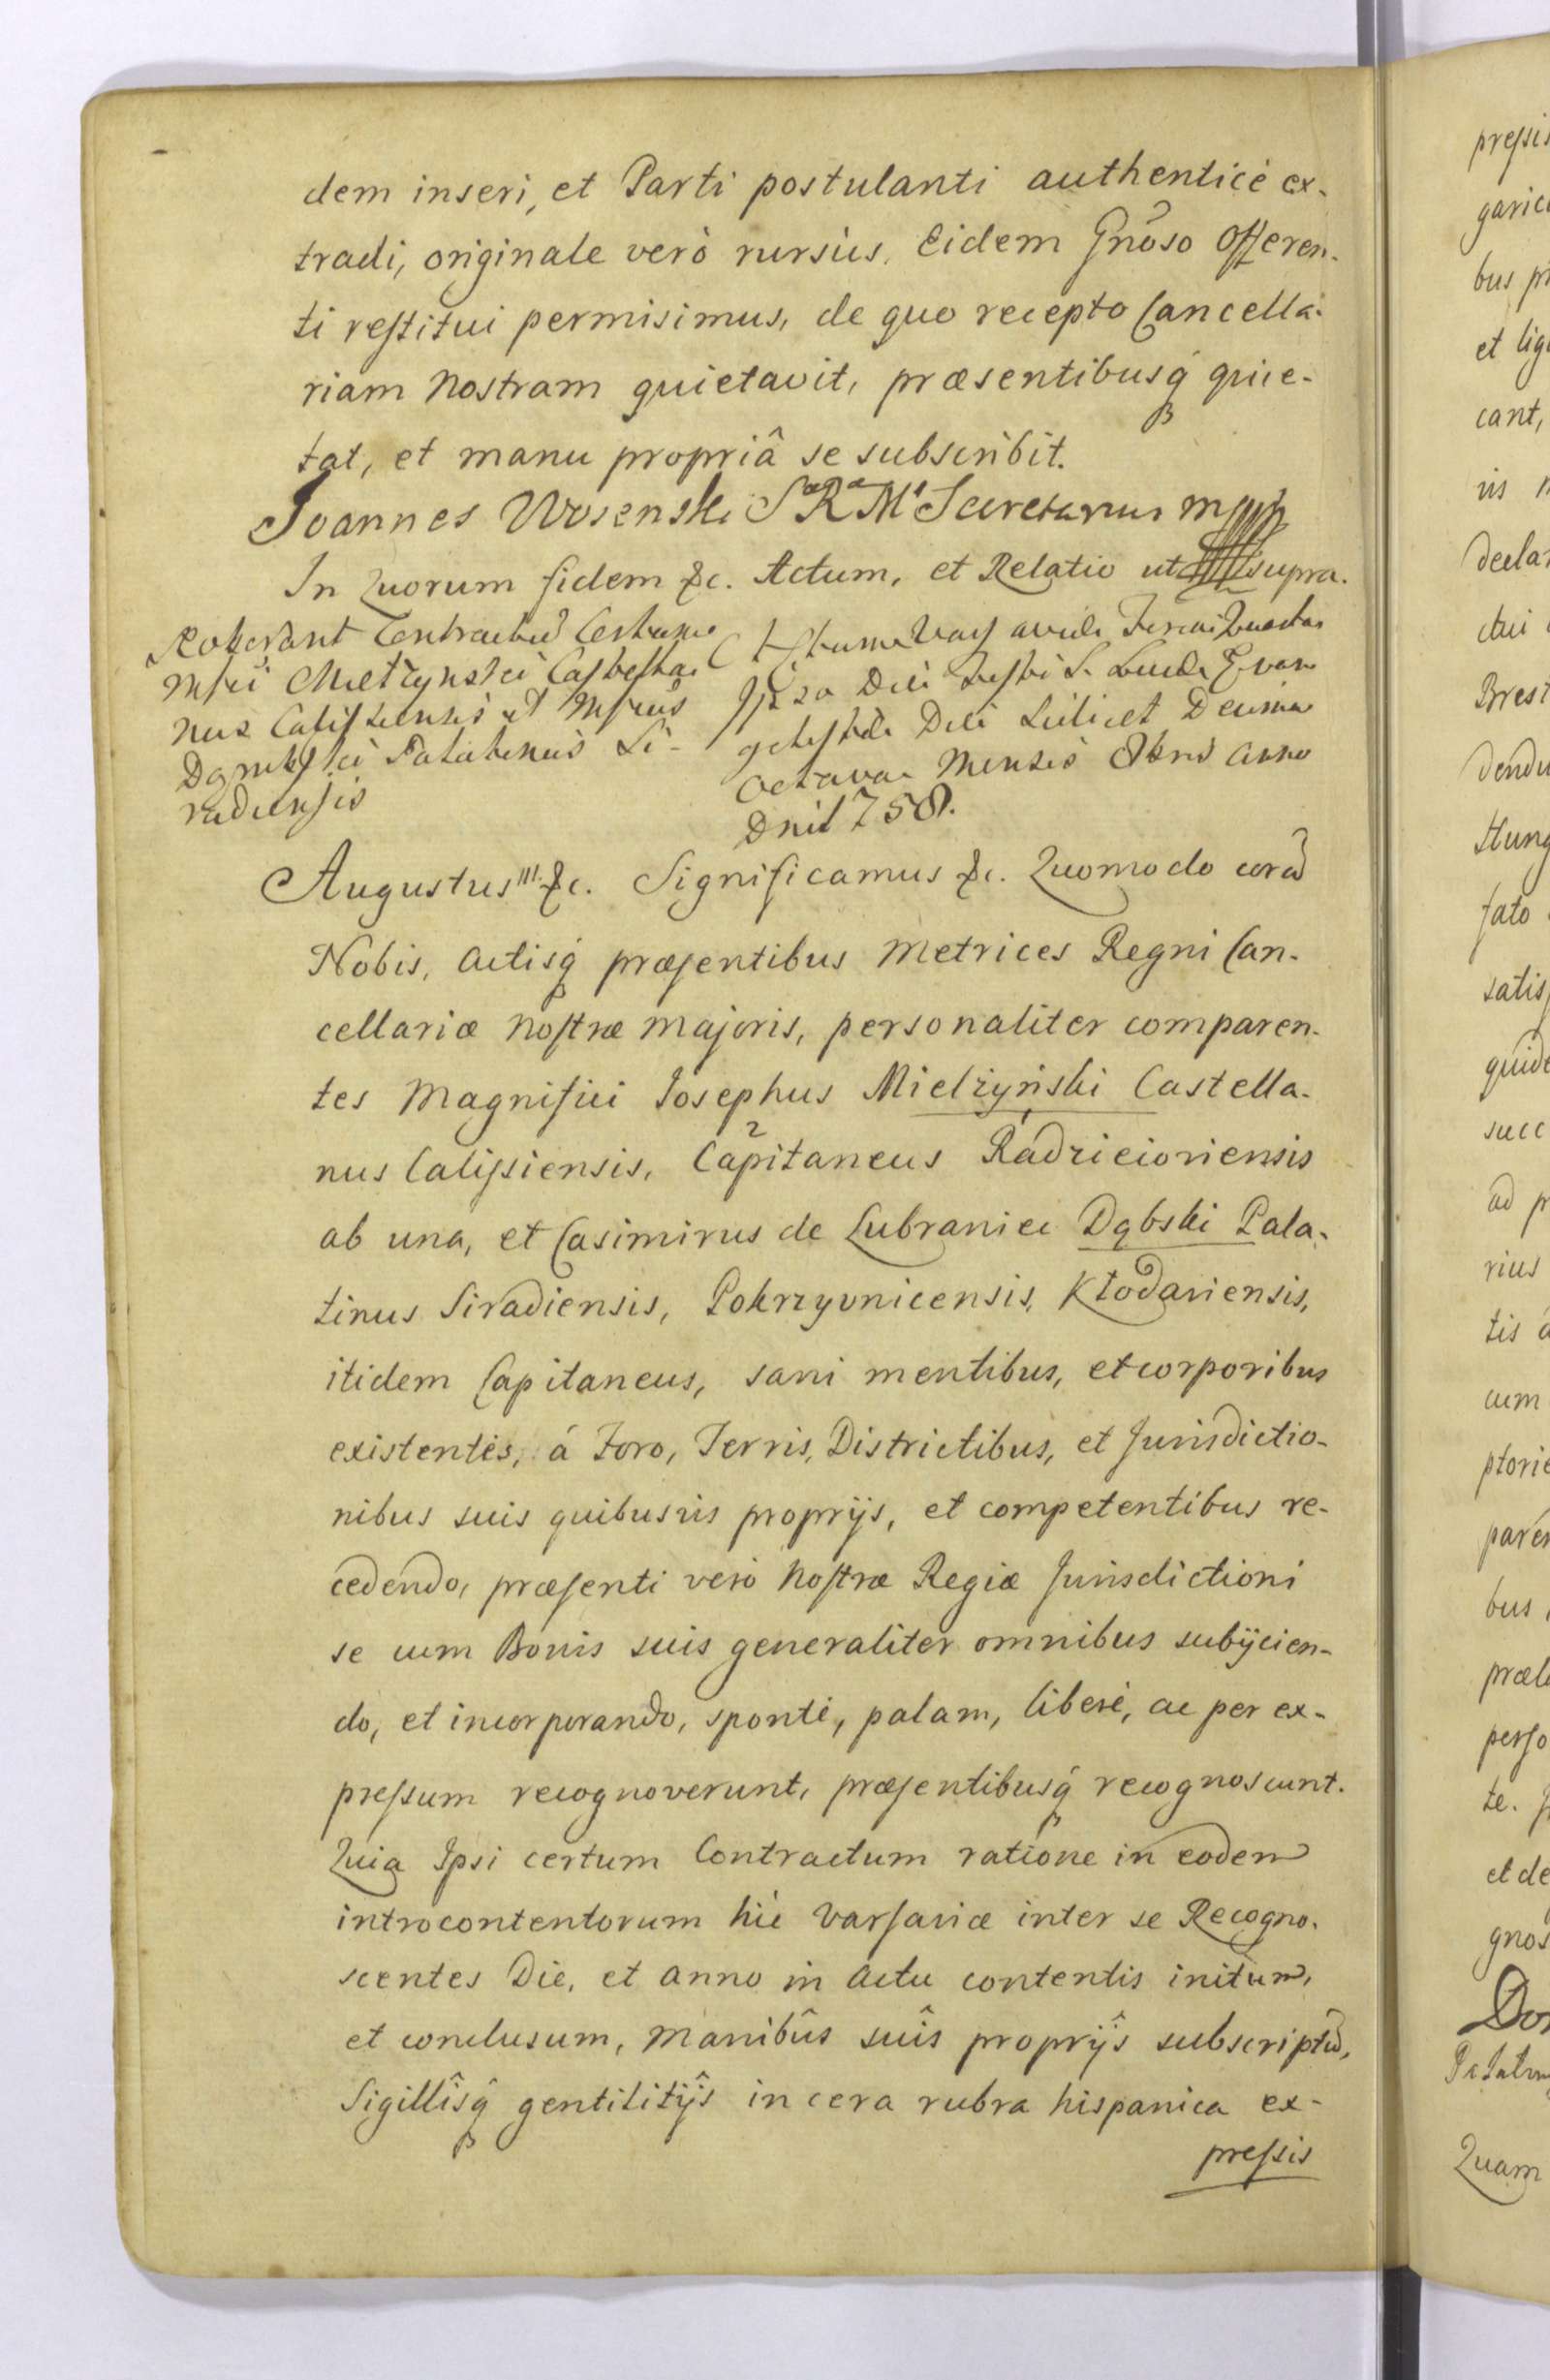 dem inseri, et Parti postulanti authenticè ex-
tradi, originale verò rursùs. Eidem Gnõso Offeren-
ti restitui permisimus, de quo recepto Cancella-
riam Nostram quietavit, præsentibusq́ quie-
tat, et manu propriâ se subscribit.
Joannes SRM Secretarius mpp
In Quorum fidem &c. Actum, et Relatio ut supra.
Roborant Contractum
Mfici Mielżynski Castella
nus Calissiensis et Mficus
Dąmbski Palatinus Si-
radiensis
Actum Varsaviæ Feria Quarta
Ipso Die Festi S. Lucæ Evan
gelistæ Die Scilicet Decima
octava Mensis 8bris Anno
Dni 1758.
Augustus III. &c. Significamus &c. Quomodo corã
Nobis, Actisq́ præsentibus Metrices Regni Can-
cellariæ Nostræ Majoris, personaliter comparen-
tes Magnifici Josephus Mielżyński Castella-
nus Calissiensis, Capitaneus Radzieioviensis
ab una, et Casimirus de Lubraniec Dąbski Pala-
tinus Siradiensis, Pokrzyvnicensis, Kłodaviensis,
itidem Capitaneus, sani mentibus, et corporibus
existentes, á Foro, Terris, Districtibus, et Jurisdictio-
nibus suis quibusvis proprijs, et competentibus re-
cedendo, præsenti verò Nostræ Regiæ Jurisdictioni
se cum Bonis suis generaliter omnibus subijcien-
do, et incorporando, sponté, palam, liberè, ac per ex-
pressum recognoverunt, præsentibusq́ recognoscunt.
Quia Ipsi certum Contractum ratione in eodem
introcontentorum hìc Varsaviæ inter se Recogno-
scentes Die, et Anno in Actu contentis initum,
et conclusum, Manibûs suîs proprijs subscriptũ,
Sigillîsq́ gentilitijs in cera rubra hispanica ex-
pressis